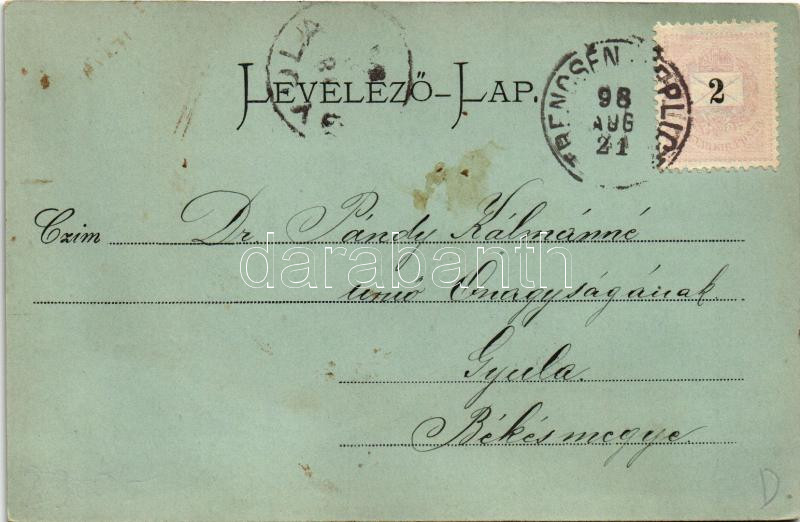 LEVELEZŐ-LAP.
TRENCSÉN TEPLICZ
98
AUG
21
2
Czim Dr. Pándy Kálmánné
darabanth
Őnagyságának
Gyula.
Békésmegye.
D.